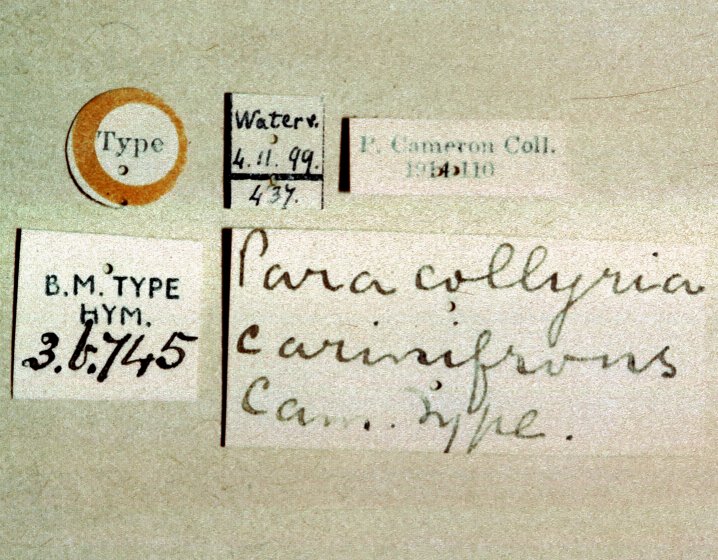 Type
Waterv.
4.11.99.
437.
P. Cameron Coll.
1914-110
B.M. TYPE
HYM.
3.b.745
Paracollyria
carinifrons
Cam. Type.